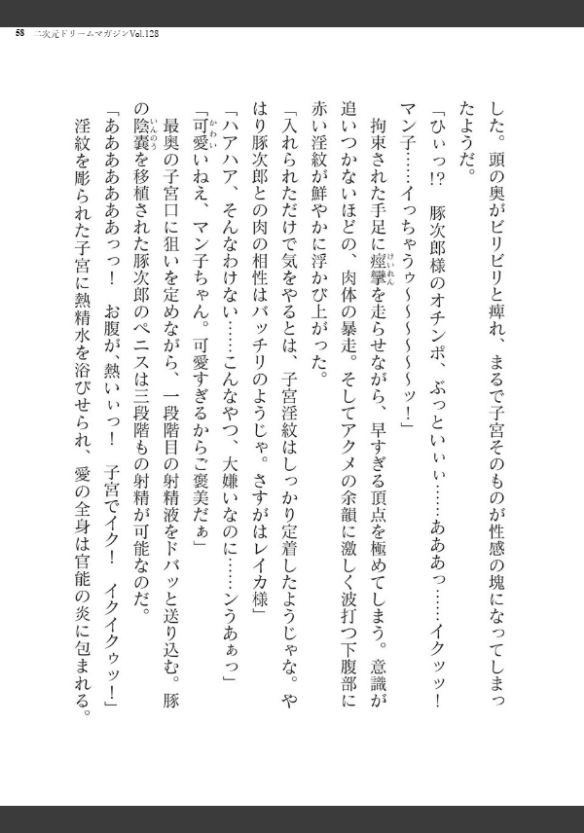 58 二次元ドリームマガジンVol.128
した。頭の奥がビリビリと痺れ、まるで子宮そのものが性感の塊になってしまっ
たようだ。
「ひぃっ!? 豚次郎様のオチンポ、ぶっといぃぃ……あああっ……イクッッ!
マン子……イっちゃうゥ〜〜〜〜〜〜ッ!」
拘束された手足に痙攣を走らせながら、早すぎる頂点を極めてしまう。意識が
追いつかないほどの、肉体の暴走。そしてアクメの余韻に激しく波打つ下腹部に
赤い淫紋が鮮やかに浮かび上がった。
「入れられただけで気をやるとは、子宮淫紋はしっかり定着したようじゃな。や
はり豚次郎との肉の相性はバッチリのようじゃ。さすがはレイカ様」
「ハアハア、そんなわけない……こんなやつ、大嫌いなのに……ンうあぁっ」
「可愛いねえ、マン子ちゃん。可愛すぎるからご褒美だぁ」
最奥の子宮口に狙いを定めながら、一段階目の射精液をドバッと送り込む。豚
の陰嚢を移植された豚次郎のペニスは三段階もの射精が可能なのだ。
「あああああああっっ! お腹が、熱いぃっ! 子宮でイク! イクイクゥッ!」
淫紋を彫られた子宮に熱精水を浴びせられ、愛の全身は官能の炎に包まれる。